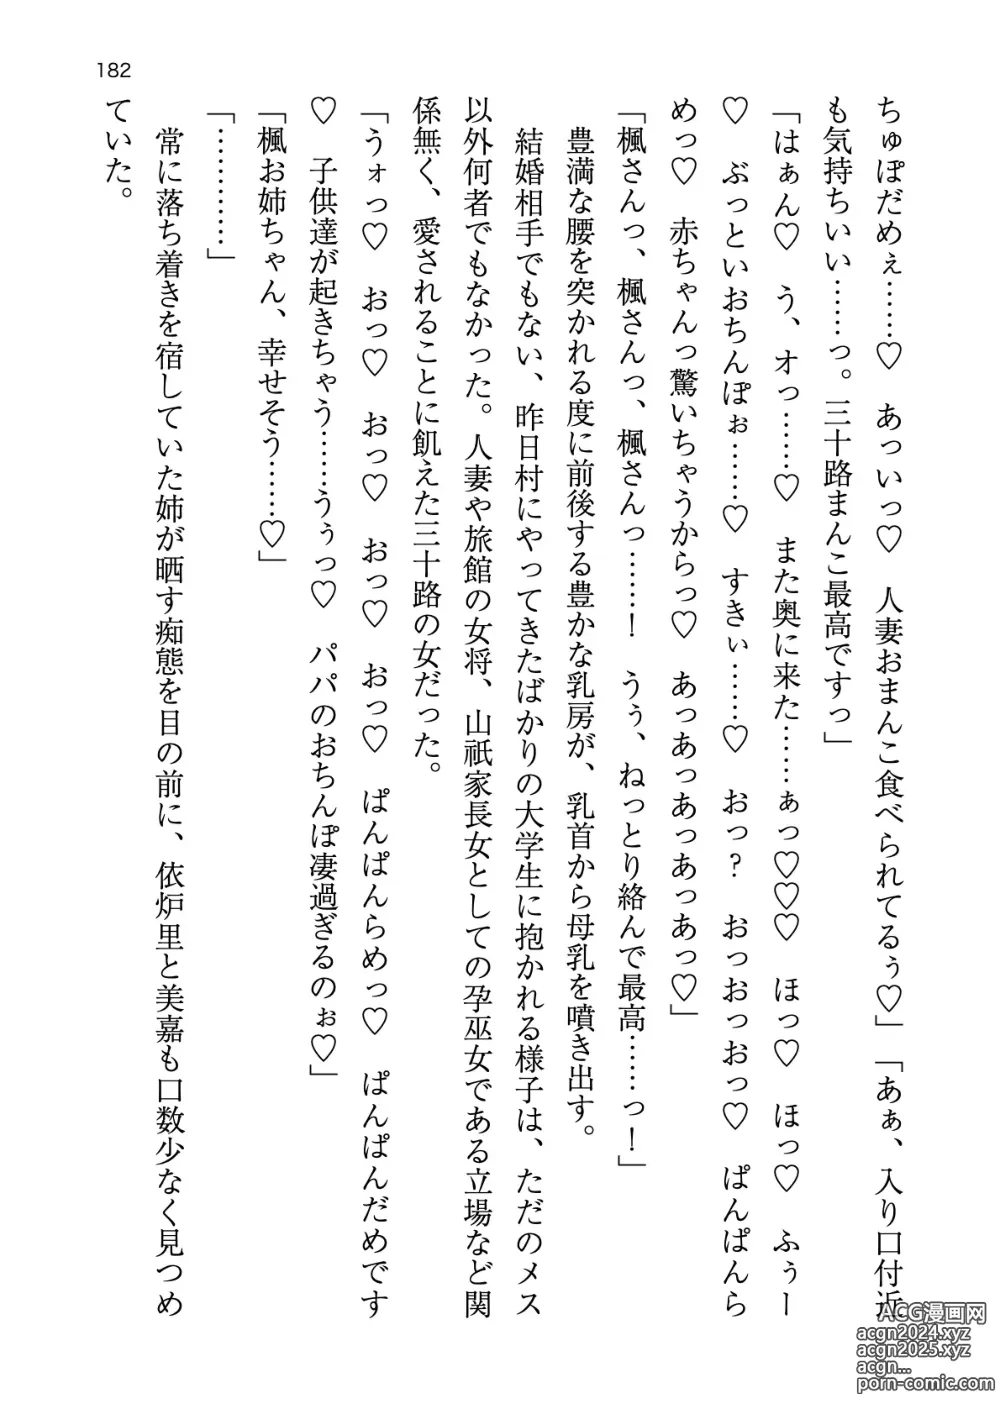 182
ちゅぽだめぇ……♡　あっいっ♡　人妻おまんこ食べられてるぅ♡」「あぁ、入り口付近
も気持ちいい……っ。三十路まんこ最高ですっ」
「はぁん♡　う、オっ……♡　また奥に来た……ぁっ♡♡♡　ほっ♡　ほっ♡　ふぅー
♡　ぶっといおちんぽぉ……♡　すきぃ……♡　おっ？　おっおっおっ♡　ぱんぱんら
めっ♡　赤ちゃんっ驚いちゃうからっ♡　あっあっあっあっあっあっ♡」
「楓さんっ、楓さんっ、楓さんっ……！　うぅ、ねっとり絡んで最高……っ！」
豊満な腰を突かれる度に前後する豊かな乳房が、乳首から母乳を噴き出す。
結婚相手でもない、昨日村にやってきたばかりの大学生に抱かれる様子は、ただのメス
以外何者でもなかった。人妻や旅館の女将、山祇家長女としての孕巫女である立場など関
係無く、愛されることに飢えた三十路の女だった。
「うォっ♡　おっ♡　おっ♡　おっ♡　おっ♡　ぱんぱんらめっ♡　ぱんぱんだめです
♡　子供達が起きちゃう……うぅっ♡　パパのおちんぽ凄過ぎるのぉ♡」
「楓お姉ちゃん、幸せそう……♡」
「…………」
常に落ち着きを宿していた姉が晒す痴態を目の前に、依炉里と美嘉も口数少なく見つめ
ていた。
ACG漫画网
acgn2024.xyz
acgn2025.xyz
acgn...
porn-comic.com